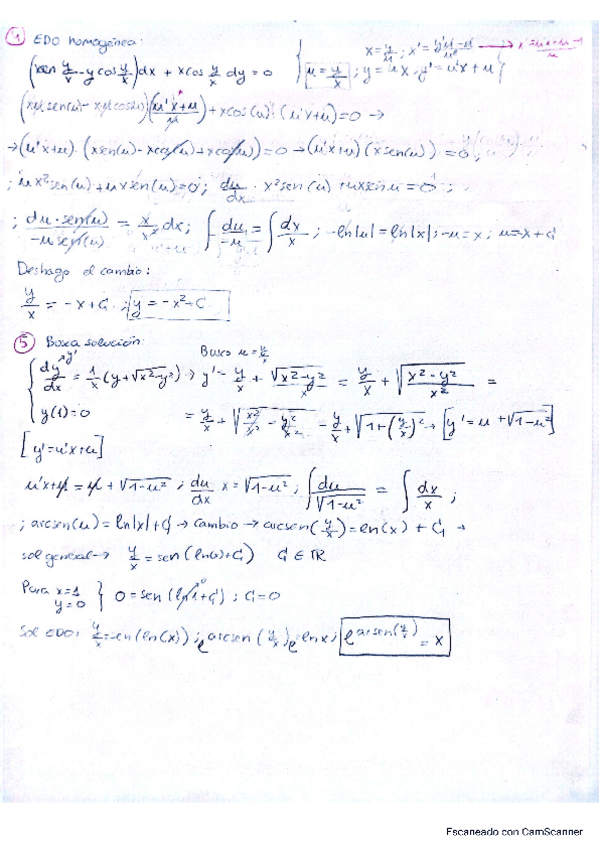 1 EDO homogénea:
(x sen y/x - y cos y/x) dx + x cos y/x dy = 0 { u = y/x ; y = u x , y' = u'x + u }
(xu sen(u) - xu cos(u)) (u'x+u)/u + x cos(u) · (u'x+u) = 0 →
→ (u'x+u) · (x sen(u) - x cos(u) + x cos(u)) = 0 → (u'x+u)(x sen(u)) = 0 ;
; u'x² sen(u) + u x sen(u) = 0 ; du/dx · x² sen(u) + u x sen u = 0 ;
; du · sen(u) / -u sen(u) = x/x² dx ; ∫ du/-u = ∫ dx/x ; -ln|u| = ln|x| ; -u = x ; u = -x + C
Deshago el cambio:
y/x = -x + C ; y = -x² + C
5 Busca solución: Busco u = y/x
{ dy/dx = 1/x (y + √x²-y²) → y' = y/x + √x²-y² / x = y/x + √(x²-y²)/x² =
y(1) = 0 = y/x + √x²/x² - y²/x² = y/x + √1+(y/x)² → [y' = u + √1-u²]
[y' = u'x+u]
u'x + u = u + √1-u² ; du/dx x = √1-u² ; ∫ du/√1-u² = ∫ dx/x ;
; arcsen(u) = ln|x| + C → cambio → arcsen(y/x) = ln(x) + C →
sol general → y/x = sen(ln(x)+C) C ∈ IR
Para x=1 y=0 } 0 = sen(ln 1 + C) ; C = 0
Sol EDO: y/x = sen(ln(x)) ; e^arcsen(y/x) = e^ln x ; e^arcsen(y/x) = x
Escaneado con CamScanner